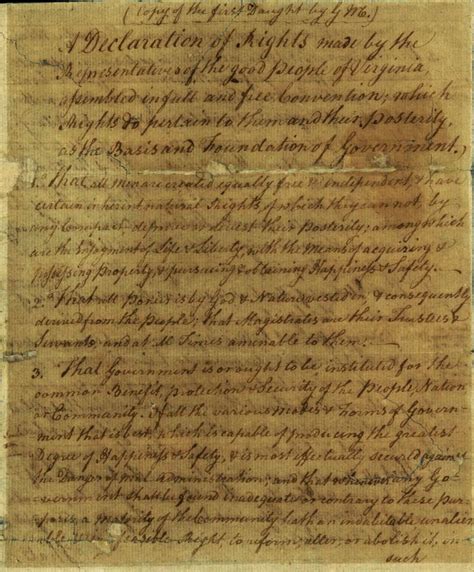 (Copy of the first Daught by G M.)
A Declaration of Rights made by the
Representatives of the good People of Virginia,
assembled in full and free Convention; which
Rights do pertain to them and their Posterity,
as the Basis and Foundation of Government.
1. That all men are created equally free & independent, & have
certain inherent natural Rights, of which they can not, by
any Compact, deprive or divest their Posterity; among which
are the Enjoyment of Life & Liberty, with the Means of acquiring &
possessing Property, & pursueing & obtaining Happiness & Safety.
2. That all Power is by God & Nature vested in & consequently
derived from the People; that Magistrates are their Trustees &
Servants, and at all Times amenable to them.
3. That Government is or ought to be instituted for the
common Benefit, protection & Security of the People, Nation
or Community. Of all the various modes & Forms of Govern-
ment that is best, which is capable of producing the greatest
Degree of Happiness & Safety, & is most effectually secured against
the Danger of mal-administration; and that whenever any Go-
vernment shall be found inadequate or contrary to these pur-
poses, a majority of the community hath an indubitable unalien-
able & indefeasible Right to reform, alter, or abolish it, in
such